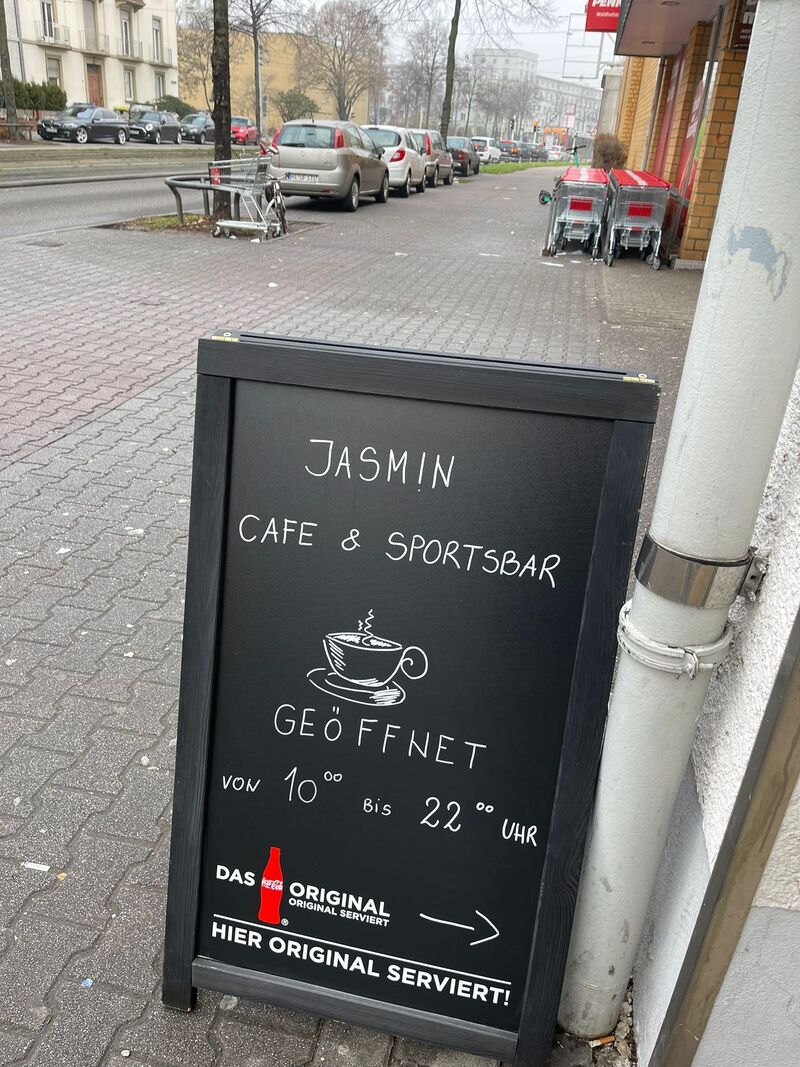 PENN
JASMIN
CAFE & SPORTSBAR
GEÖFFNET
VON 10⁰⁰ BIS 22⁰⁰ UHR
DAS Coca-Cola ORIGINAL
ORIGINAL SERVIERT
HIER ORIGINAL SERVIERT!